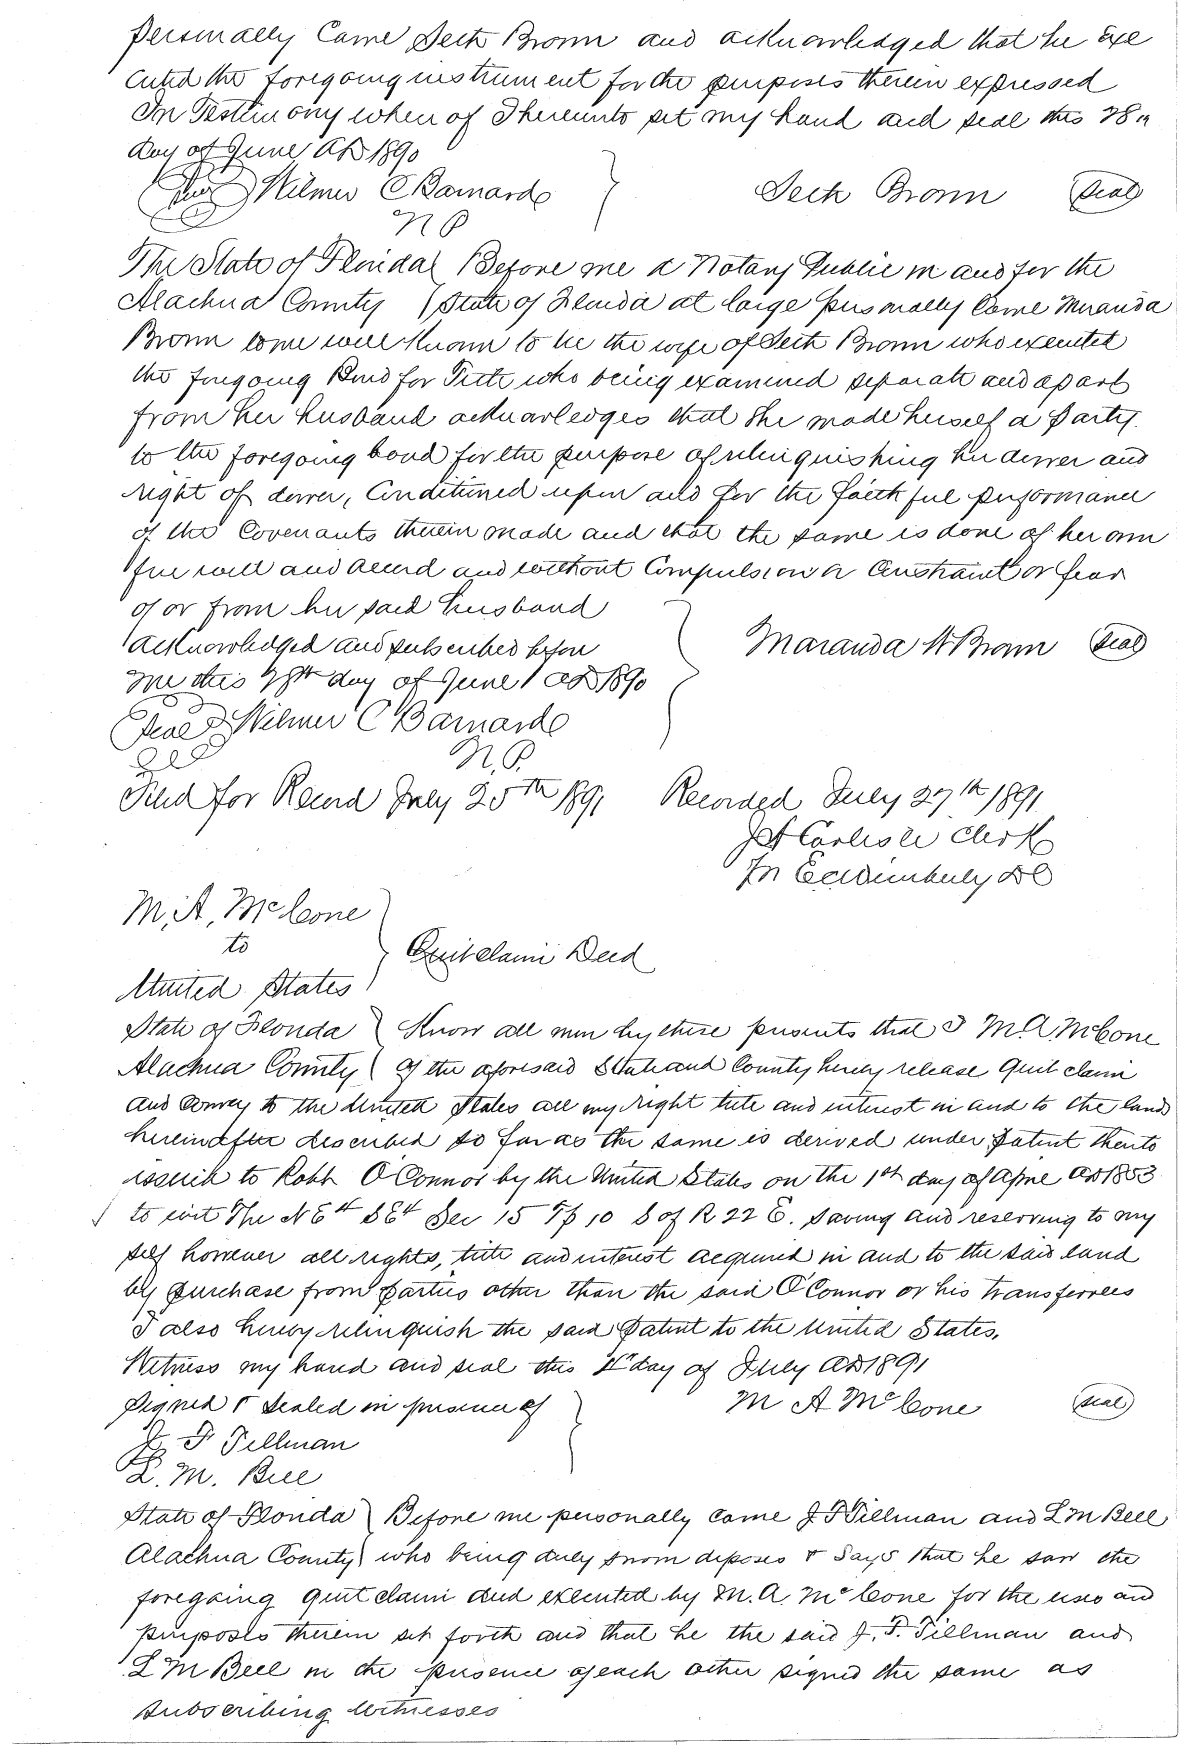 personally Came Seth Brown and acknowledged that he Exe
cuted the foregoing instrument for the purposes therein expressed
In Testimony where of I hereunto set my hand and seal this 28th
day of June AD 1890
Seal Wilmer C Barnarde Seth Brown Seal
N P
The State of Florida Before me a Notary Public in and for the
Alachua County State of Florida at large personally Came Miranda
Brown to me well Known to be the wife of Seth Brown who executed
the forgoing Bond for Title who being examined separate and apart
from her husband acknowledges that She made herself a party
to the foregoing bond for the purpose of relinquishing her dower and
right of dower, Conditioned upon and for the faithful performance
of the Covenants therein made and that the same is done of her own
free will and accord and without Compulsion or Constraint or fear
of or from her said husband
Acknowledged and subscribed before Maranda W Brown Seal
me this 28th day of June AD 1890
Seal Wilmer C Barnarde
N. P.
Filed for Record July 25th 1891 Recorded July 27th 1891
J A Carlisle Clerk
Pr E C Wimberly DC
M, A, McCone
to Quit claim Deed
United States
State of Florida Know all men by these presents that I M. A. McCone
Alachua County Of the aforesaid State and County hereby release Quit claim
and Convey to the United States all my right title and interest in and to the lands
hereinafter described so far as the same is derived under patent thereto
issued to Robt O'Connor by the United States on the 1st day of April AD 1853
to wit The NE4 SE4 Sec 15 Tp 10 S of R 22 E. saving and reserving to my
self however all rights, title and interest acquired in and to the said land
by purchase from parties other than the said O'Connor or his transferrees
I also hereby relinquish the said patent to the United States.
Witness my hand and seal this day of July AD 1891
Signed & sealed in presence of M A McCone Seal
J. F Tillman
L. M. Bell
State of Florida Before me personally came J F Tillman and L M Bell
Alachua County who being duly sworn deposes & Says that he saw the
foregoing Quit claim deed executed by M. A. McCone for the uses and
purposes therein set forth and that he the said J. F. Tillman and
L M Bell in the presence of each other signed the same as
subscribing witnesses